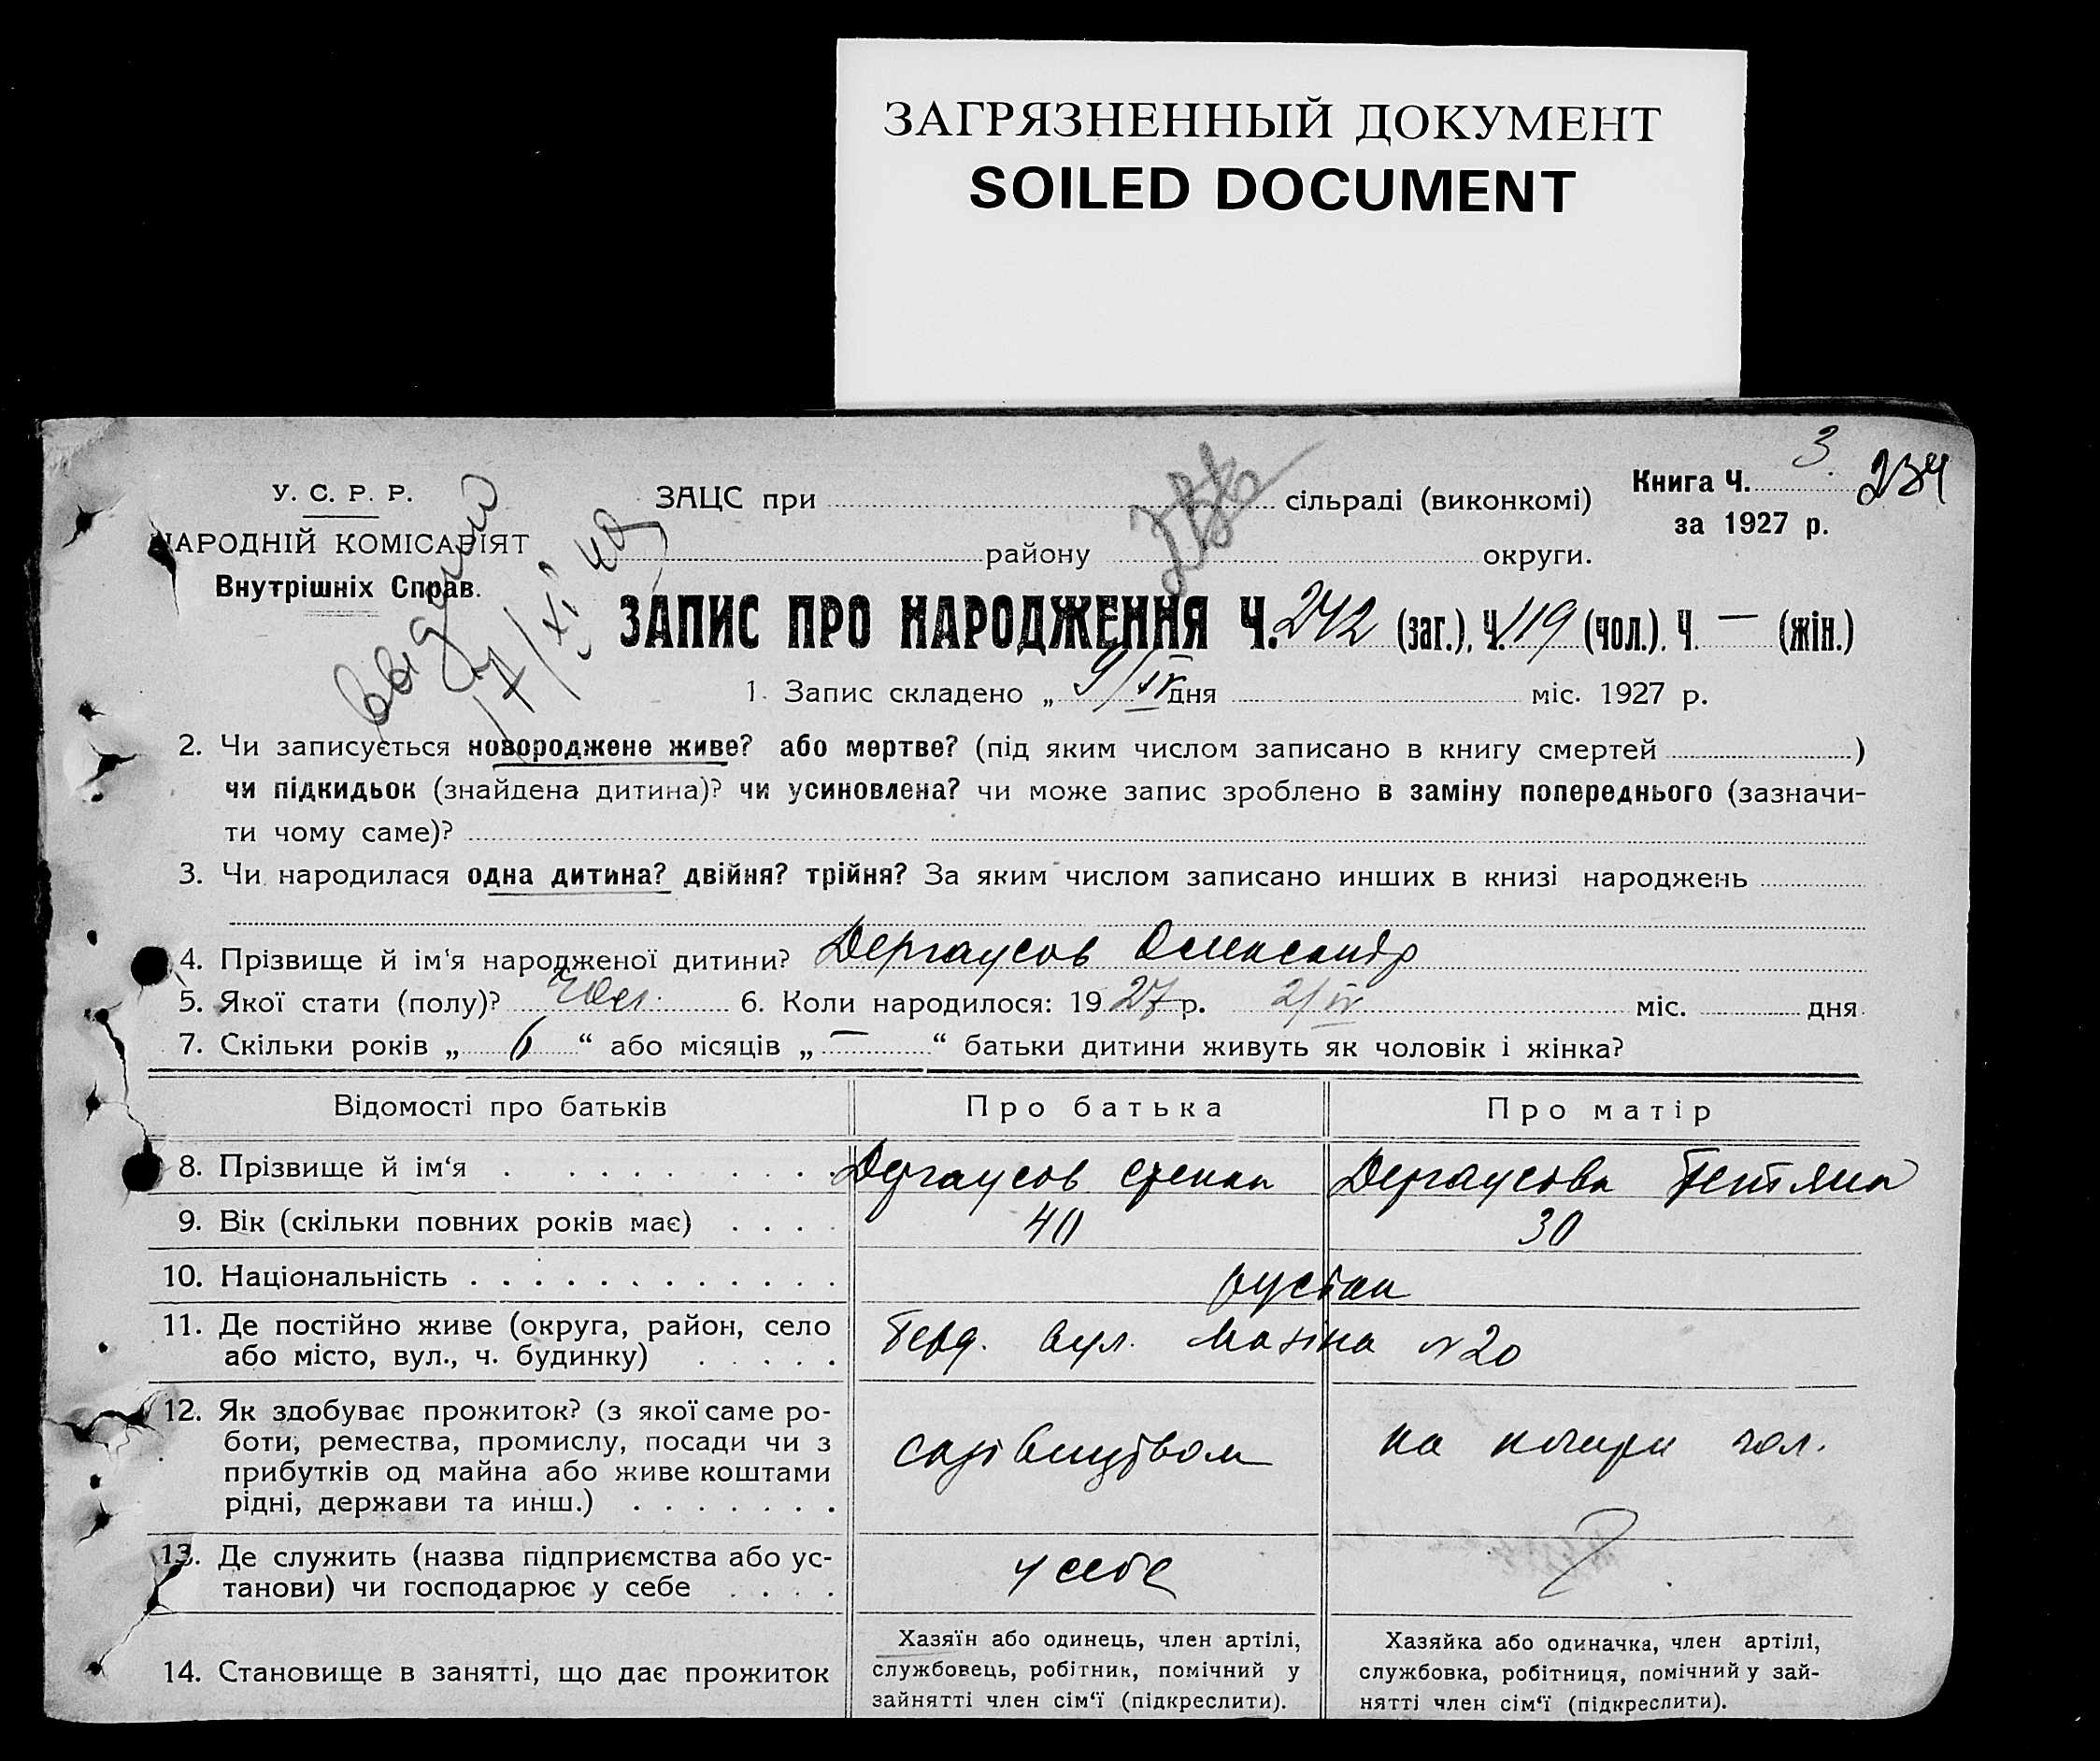 ЗАГРЯЗНЕННЫЙ ДОКУМЕНТ
SOILED DOCUMENT
3.
234
У. С. Р. Р.
НАРОДНІЙ КОМІСАРІЯТ
Внутрішніх Справ.
17/XI
ЗАЦС при сільраді (виконкомі)
Книга Ч.
за 1927 р.
району округи.
ЗАПИС ПРО НАРОДЖЕННЯ Ч. 242 (заг.), Ч. 119 (чол.). Ч. — (жін.)
1. Запис складено „ 9/IV дня міс. 1927 р.
2. Чи записується новороджене живе? або мертве? (під яким числом записано в книгу смертей )
чи підкидьок (знайдена дитина)? чи усиновлена? чи може запис зроблено в заміну попереднього (зазначи-
ти чому саме)?
3. Чи народилася одна дитина? двійня? трійня? За яким числом записано инших в книзі народжень
4. Прізвище й ім‘я народженої дитини? Дергаусов Олександр
5. Якої стати (полу)? Чол. 6. Коли народилося: 19 27 р. 2/IV міс. дня
7. Скільки років „ 6 “ або місяців „ — “ батьки дитини живуть як чоловік і жінка?
Відомості про батьків Про батька Про матір
8. Прізвище й ім‘я Дергаусов Степан Дергаусова Тетяна
9. Вік (скільки повних років має) 40 30
10. Національність
11. Де постійно живе (округа, район, село
або місто, вул., ч. будинку)
Берд. вул. № 20
12. Як здобуває прожиток? (з якої саме ро-
боти, ремества, промислу, посади чи з
прибутків од майна або живе коштами
рідні, держави та инш.)
садівництвом
на чол.
13. Де служить (назва підприємства або ус-
танови) чи господарює у себе
у себе
14. Становище в занятті, що дає прожиток
Хазяїн або одинець, член артілі,
службовець, робітник, помічний у
зайнятті член сім‘ї (підкреслити).
Хазяйка або одиначка, член артілі,
службовка, робітниця, помічний у зай-
нятті член сім‘ї (підкреслити).